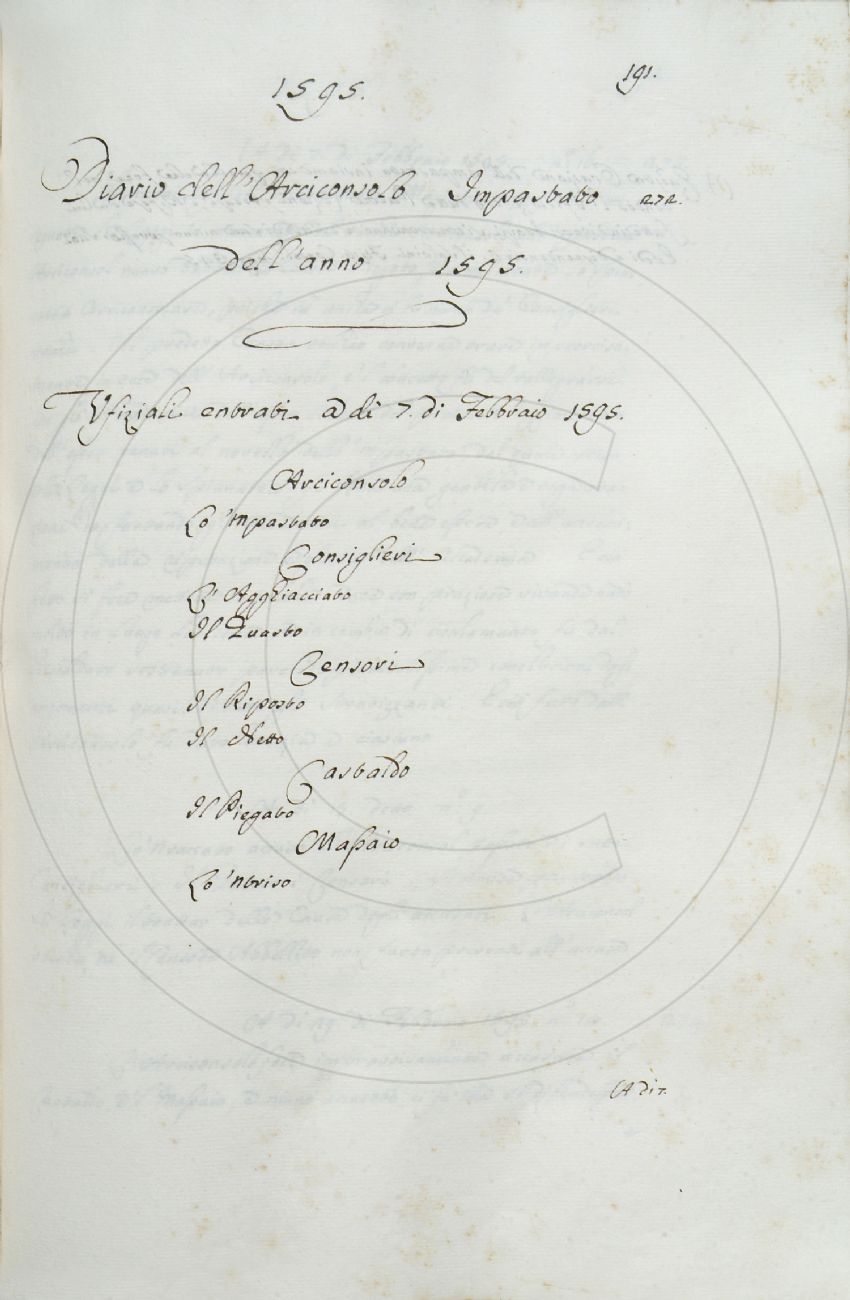 1595.
191.
Diario dell'Arciconsolo Impastato 272.
dell'anno 1595.
Vfiziali entrati a dì 7. di Febbraio 1595.
Arciconsolo
Lo 'mpastato
Consiglieri
L'Agghiacciato
Il Guasto
Censori
Il Riposto
Il Netto
Castaldo
Il Piegato
Massaio
Lo 'ntriso
A di 7.